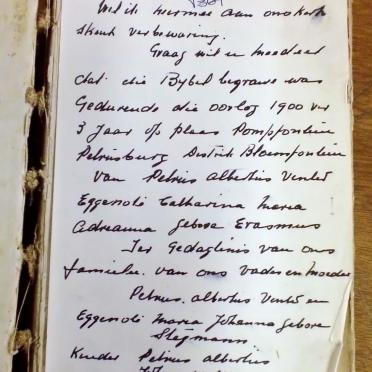 Wil ik hiermee aan ons kerk
skenk ver bewaring.
Graag wil u meedeel
dat die Bybel begrawe was
Gedurende die oorlog 1900 vir
3 Jaar op plaas Pompfontein
Petrusburg Distrik Bloemfontein
van Petrus albertus Venter
Eggenote Catharina Maria
Adreanna gebore Erasmus
Ter Gedagtenis van ons
familie. van ons vader en moeder
Petrus. albertus Venter en
Eggenote Maria Johanna gebore
Stegmann
Kinder Petrus albertus